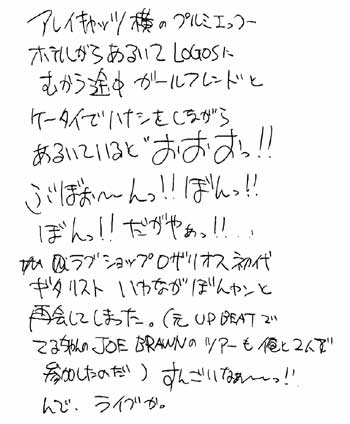 アレイキャッツ横のプルミエっつー
ホテルからあるいてLOGOSに
むかう途中ガールフレンドと
ケータイでハナシをしながら
あるいていると"おおおっ!!
ぶぼぉ〜〜んっ!!ぼんっ!!
ぼんっ!!だがやぁっ!!...
ラブショップロザリオス初代
ギタリストいわながぼんやンと
再会してしまった。(元UP BEATで
てるちゃんのJOE BRAWNのツアーも俺と2人で
参加したのだ)すんごいなぁ〜〜っ!!
んで、ライブか。